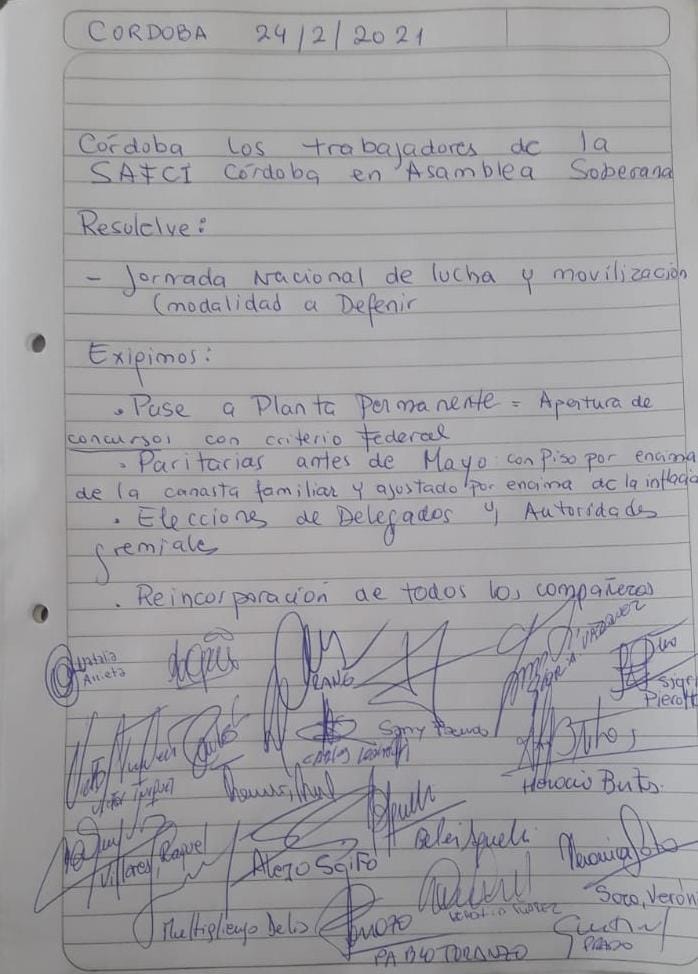 CORDOBA 24/2/2021
Córdoba los trabajadores de la
SAFCI Córdoba en Asamblea Soberana
Resulelve:
- Jornada Nacional de lucha y movilización
(modalidad a Defenir
Exipimos:
. Pase a Planta Permanente = Apertura de
concursos con criterio Federal
. Paritarias antes de Mayo con Piso por encima
de la canasta familiar y ajustado por encima de la inflacio
. Elecciones de Delegados y Autoridades
gremiales
. Reincorporación de todos los compañeros
Natalia
Arrieta
VAZQUEZ
Pierot
Horacio Bustos
Villares, Raquel
Alejo Sgifo
Veronica Soto
Soto, Veróni
PABLO TORANZO
PRADO